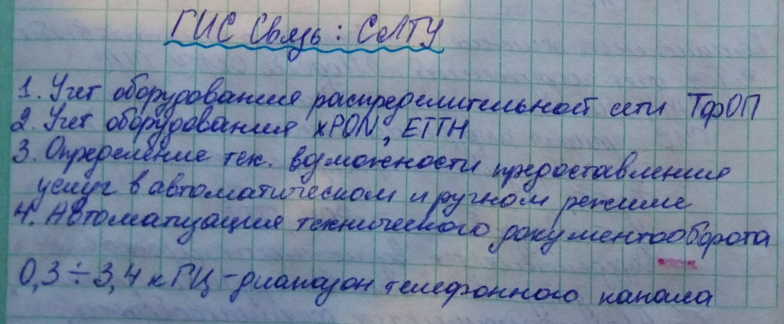 ГИС Связь: СЛТУ
1. Учет оборудования распределительност сети ТфОП
2. Учет оборудования xPON, ETTH
3. Определение тех. возможности предоставления
услуг в автоматическом и ручном режиме
4. Автоматизация технического документооборота
0,3÷3,4 кГЦ - диапазон телефонного канала